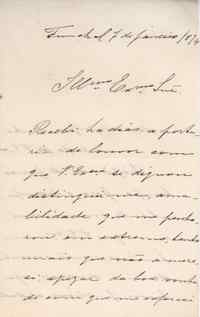 Funchal 7 de janeiro /9/4
Illmo Exmo Snr.
Recebi ha dias a porta-
ria de louvor com
que V. Exa se dignou
distinguir me, ama-
bilidade que me penho-
rou em extremo, tanto
mais que não a mere-
ci apezar da boa vonta-
de com que me